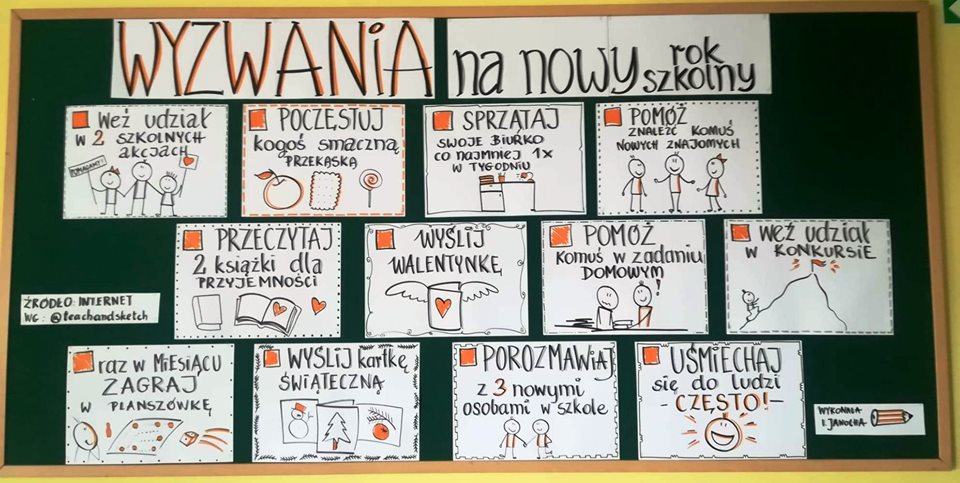 WYZWANIA na nowy rok
szkolny
Weź udział
w 2 SZKOLNYCH
AKCJACH
POMAGAMY!
POCZĘSTUJ
kogoś smaczną
PRZEKĄSKĄ
SPRZĄTAJ
SWOJE BIURKO
CO NAJMNIEJ 1x
W TYGODNIU
POMÓŻ
ZNALEŹĆ KOMUŚ
NOWYCH ZNAJOMYCH
PRZECZYTAJ
2 książki dla
PRZYJEMNOŚCI
WYŚLIJ
WALENTYNKĘ
POMÓŻ
KOMUŚ W ZADANIU
DOMOWYM
!
WEŹ udział
w KONKURSIE
ŹRÓDŁO: INTERNET
WG: @teachandsketch
raz w MIESIĄCU
ZAGRAJ
W PLANSZÓWKĘ
WYŚLIJ kartkę
ŚWIĄTECZNĄ
POROZMAWIAJ
z 3 nowymi
osobami w szkole
UŚMIECHAJ
się do ludzi
- CZĘSTO! -
WYKONAŁA
I. JANOCHA